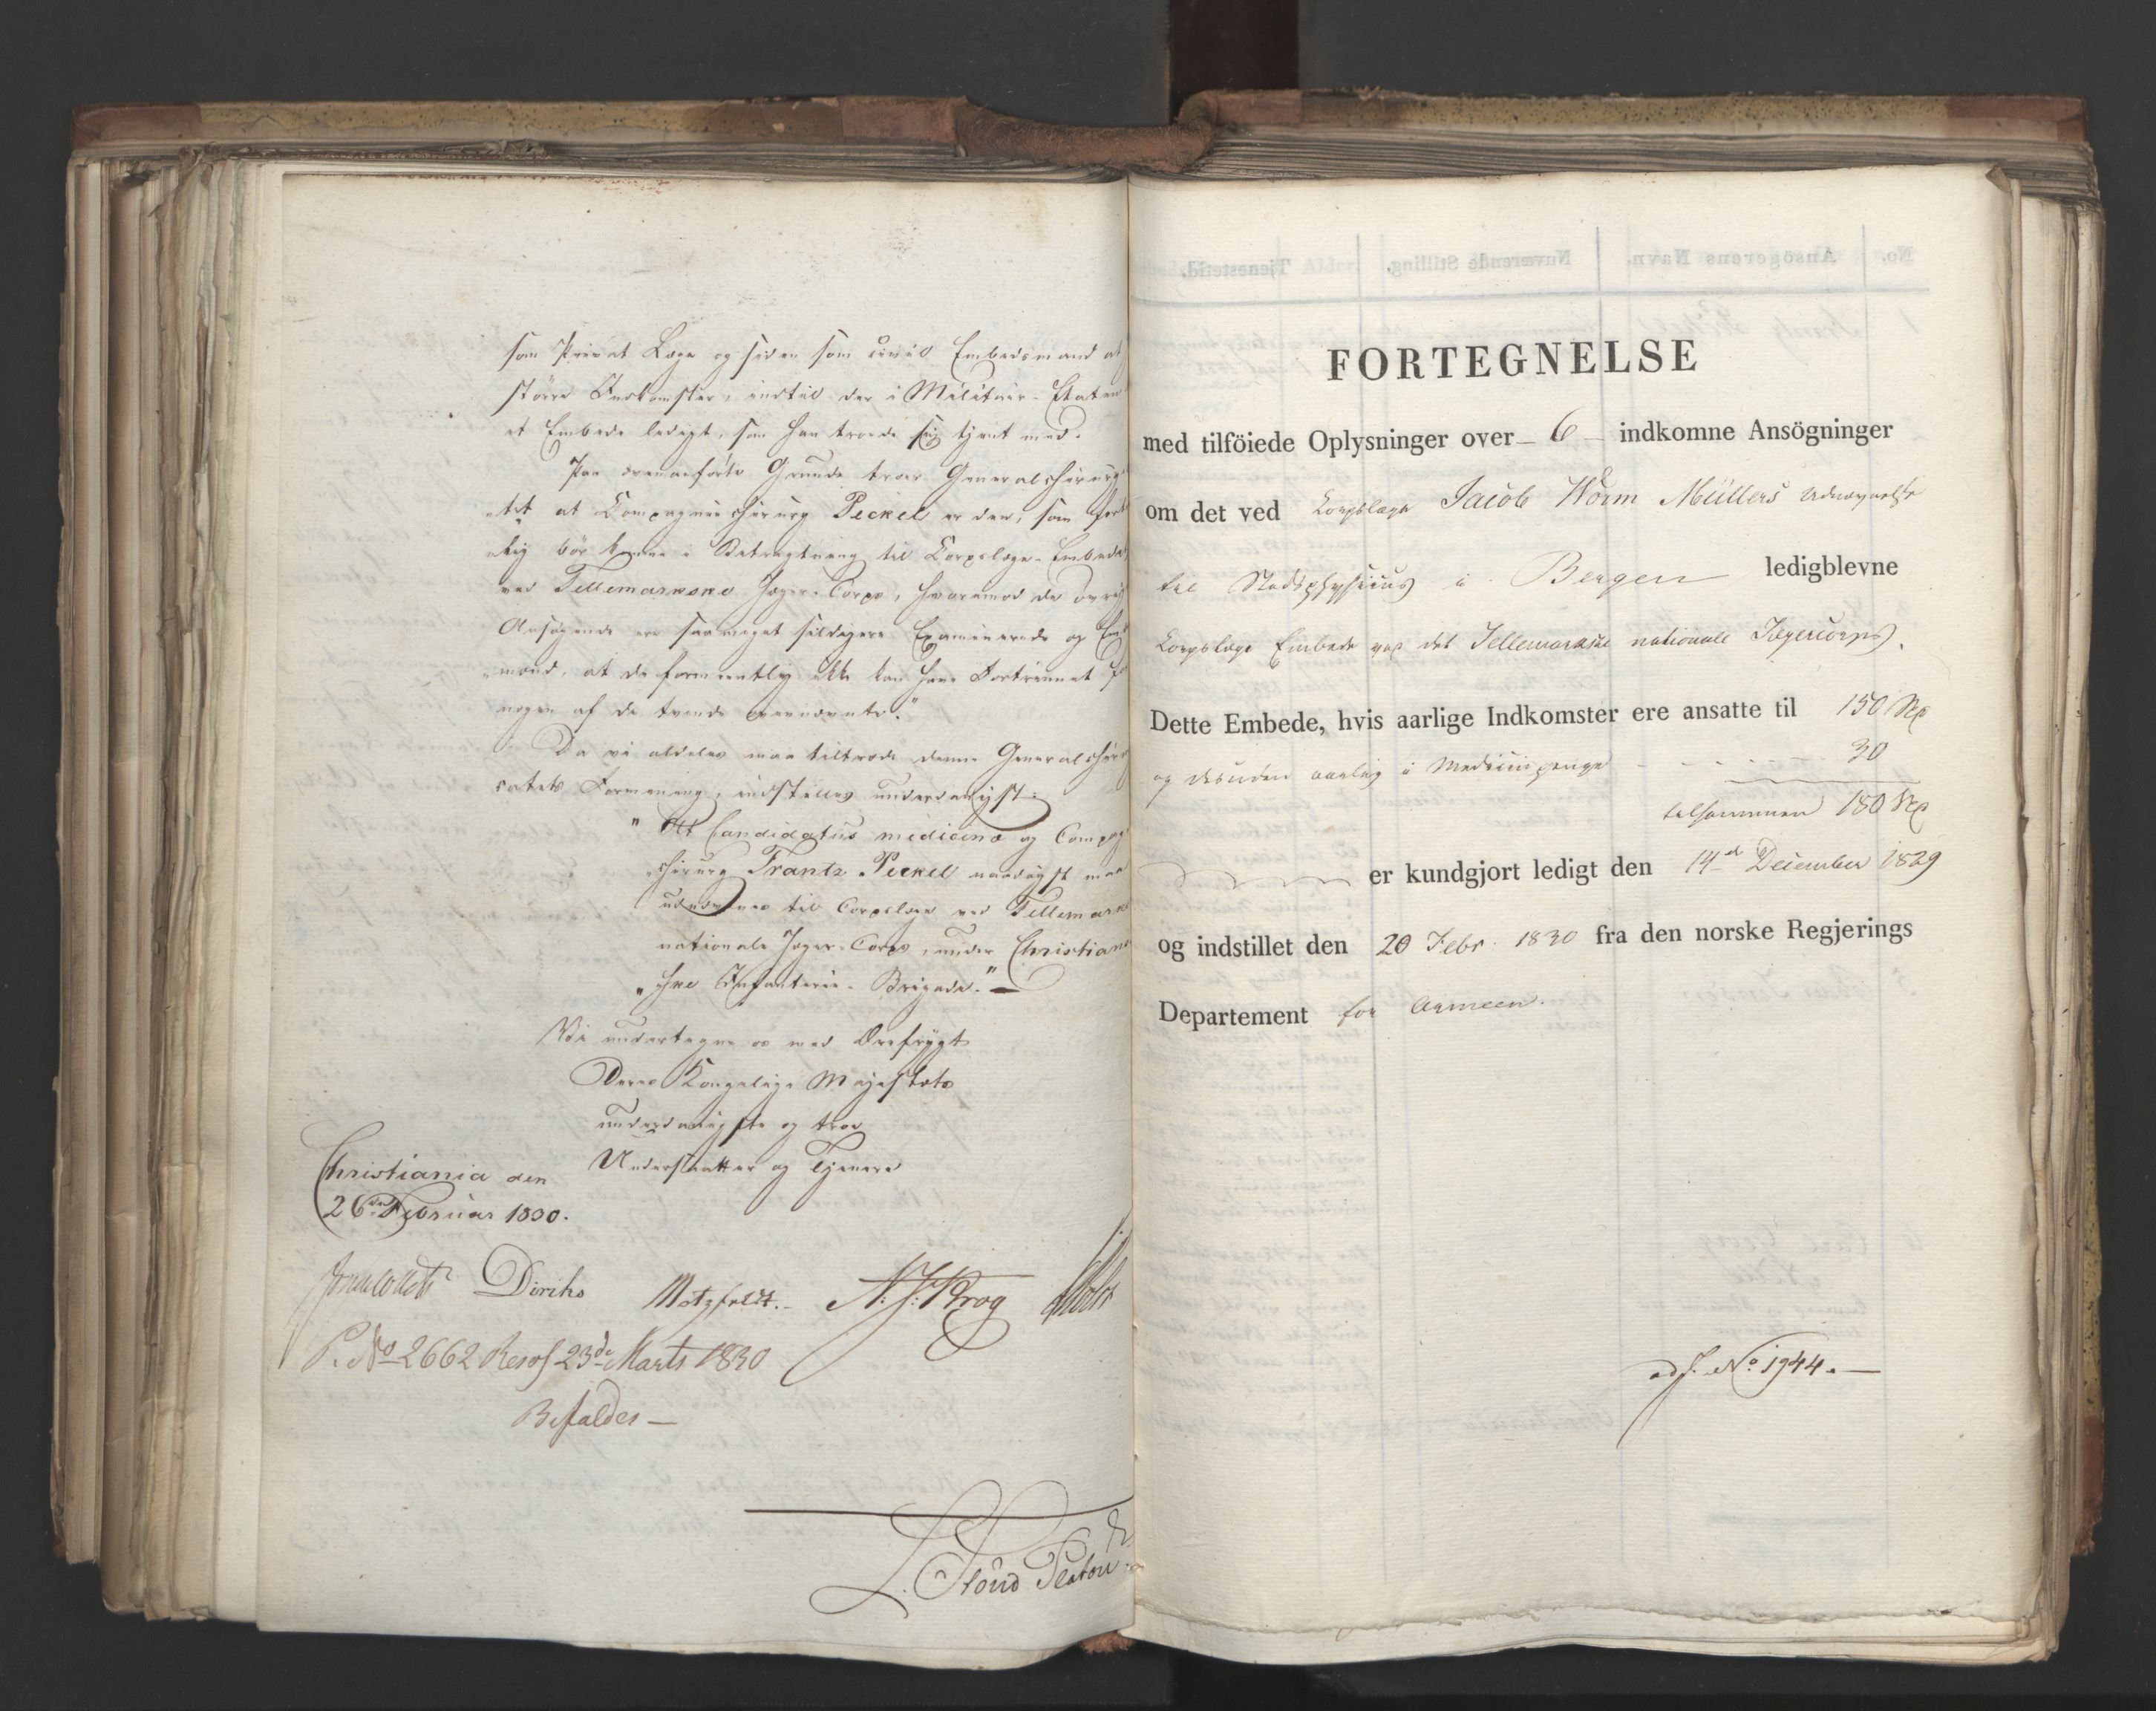 som Privat Læge og siden som civil Embedsmand at
större Indkomster, indtil der i Militair-Etaten
et Embede ledigt, som han troede sig tjent med.
Paa ovenanförte Grunde troer Generalchirurg
tet at Compagniechirurg Peckel er den, som for
lig bör komme i Betragtning til Corpslæge-Embedet
ved Tellemarkske Jæger-Corps, hvorimod de övrig
Ansögende ere saameget sildigere Examinerede og
mænd, at de formeentlig ikke kan have Fortrinnet
nogen af de tvende ovennævnte."
Da vi aldeles maa tiltræde denne Generalchir
catets Formening, indstilles underdanigst:
"At Candidatus medicinæ og Compag
chirurg Frantz Peckel naadigst maa
udnævnes til Corpslæge ved Tellemark
nationale Jæger-Corps, under Christian
"ske Infanterie-Brigade."
Vi undertegne os med Ærefrygt
Deres Kongelige Majestæts
underdanigste og troe
Undersaatter og Tjenere
Christiania den
26de Februar 1830.
Diriks Motzfeldt. N. J. Krog
P. No 2662 Resol 23de Marts 1830
Bifaldes
L. Stoud Platou
FORTEGNELSE
med tilföiede Oplysninger over 6 indkomne Ansögninger
om det ved Korpslæge Jacob Worm Müllers Udnævnelse
til Stadsphysicus i Bergen ledigblevne
Korpslæge Embede ved det Tellemarkske nationale Jægercorps.
Dette Embede, hvis aarlige Indkomster ere ansatte til 150 Sp
og desuden aarlig i Medicinpenge 30
tilsammen 180 Sp
er kundgjort ledigt den 14de December 1829
og indstillet den 20 Febr. 1830 fra den norske Regjerings
Departement for Armeen.
No 1944.